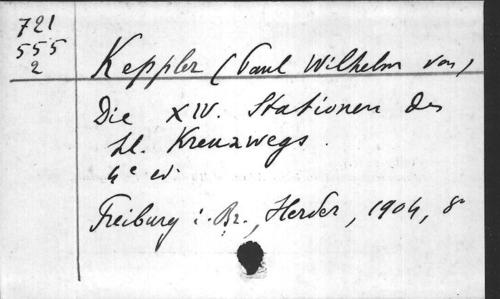 721
555
2
Keppler (Paul Wilhelm von)
Die XIV. Stationen des
hl. Kreuzwegs.
4e ed.
Freiburg i. Br., Herder, 1904, 8°